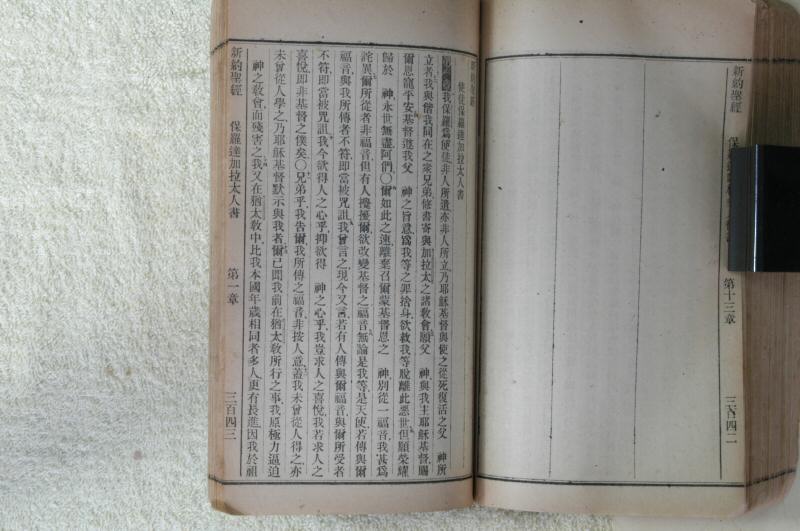 新約聖經
第十三章
三百四十二
使徒保羅達加拉太人書
我保羅爲使徒、非人所遣、亦非人所立、乃耶穌基督與使之從死復活之父　神所
立者、我與偕我同在之衆兄弟修書寄與加拉太之諸教會、願父　神與我主耶穌基督、賜
爾恩寵平安、基督遵我父　神之旨意、爲我等之罪捨身、欲救我等脫離此惡世、但願榮耀
歸於　神、永世無盡、阿們、〇爾如此之速、離棄召爾蒙基督恩之　神、別從一福音、我甚爲
詫異、爾所從者非福音、但有人攪擾爾、欲改變基督之福音、無論是我等、是天使、若傳與爾
福音、與我所傳者不符、即當被咒詛、我曾言之、現今又言、若有人傳與爾福音、與爾所受者
不符、即當被咒詛、我今欲得人之心乎、抑欲得　神之心乎、我豈求人之喜悅、我若求人之
喜悅、即非基督之僕矣、〇兄弟乎、我告爾、我所傳之福音、非按人意、蓋我未曾從人得之、亦
未曾從人學之、乃耶穌基督默示與我者、爾已聞我前在猶太教所行之事、我原極力逼迫
神之教會、而殘害之、我又在猶太教中、比我本國年歲相同者多人、更有長進、因我於祖
新約聖經
保羅達加拉太人書
第一章
三百四三